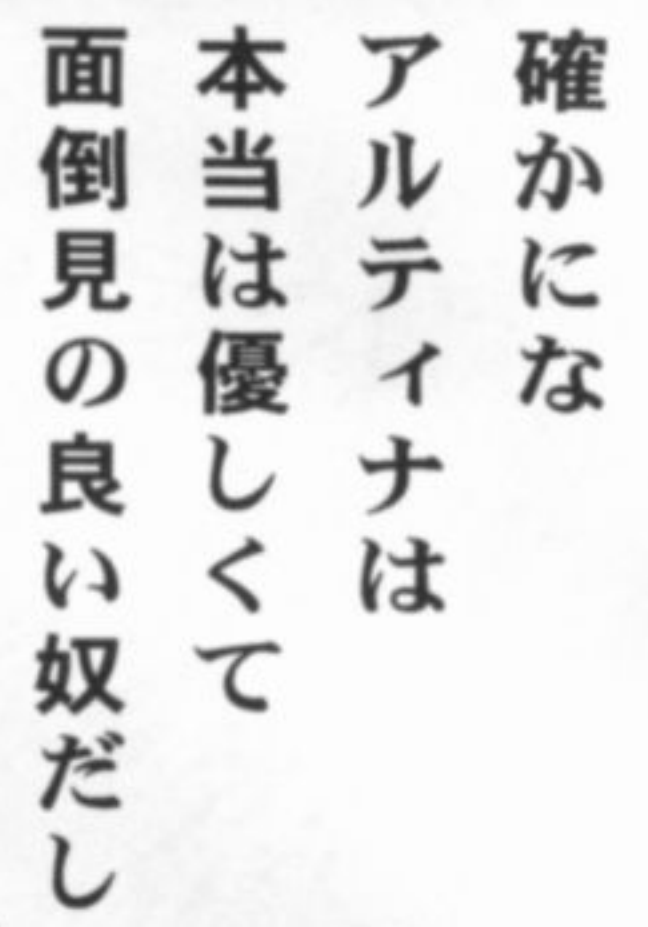 確かにな
アルティナは
本当は優しくて
面倒見の良い奴だし